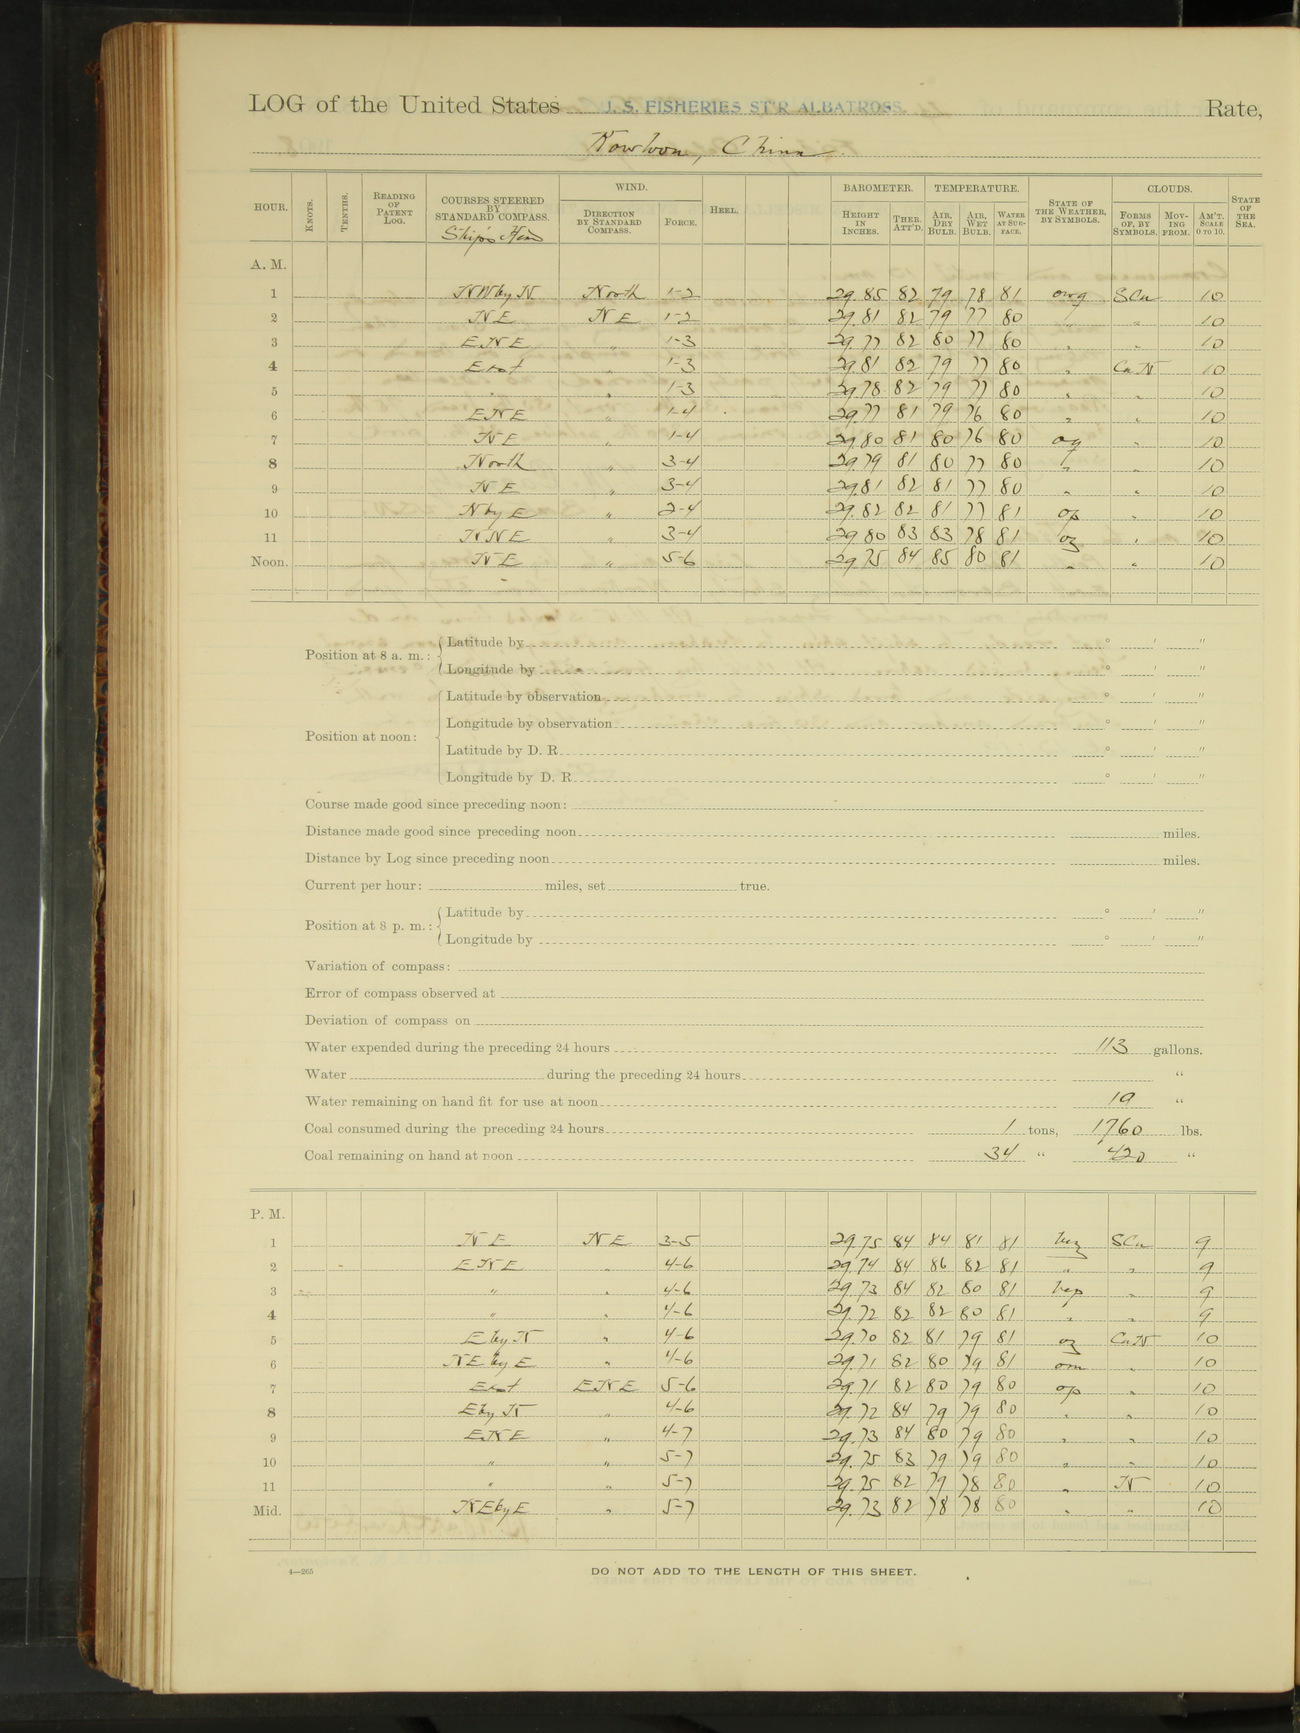 LOG of the United States U. S. FISHERIES ST'R ALBATROSS. Rate,
Kowloon, China.
HOUR. KNOTS. TENTHS. READING OF PATENT LOG. COURSES STEERED BY STANDARD COMPASS. Ship's Head WIND. DIRECTION BY STANDARD COMPASS. FORCE. HEEL. BAROMETER. HEIGHT IN INCHES. THER. ATT'D. TEMPERATURE. AIR, DRY BULB. AIR, WET BULB. WATER AT SURFACE. STATE OF THE WEATHER, BY SYMBOLS. CLOUDS. FORMS OF, BY SYMBOLS. MOVING FROM. AM'T. SCALE 0 TO 10. STATE OF THE SEA.
A. M.
1 NW by N North 1-2 29.85 82 79 78 81 SCu 10
2 NE NE 1-2 29.81 82 79 77 80 " " 10
3 ENE " 1-3 29.77 82 80 77 80 " " 10
4 East " 1-3 29.81 82 79 77 80 " CuN 10
5 " " 1-3 29.78 82 79 77 80 " " 10
6 ENE " 1-4 29.77 81 79 76 80 " " 10
7 NE " 1-4 29.80 81 80 76 80 og " 10
8 North " 3-4 29.79 81 80 77 80 " " 10
9 NE " 3-4 29.81 82 81 77 80 " " 10
10 N by E " 2-4 29.82 82 81 77 81 op " 10
11 NNE " 3-4 29.80 83 83 78 81 oz " 10
Noon. NE " 5-6 29.75 84 85 80 81 " " 10
Position at 8 a. m.: Latitude by ° ' "
Longitude by ° ' "
Position at noon: Latitude by observation ° ' "
Longitude by observation ° ' "
Latitude by D. R. ° ' "
Longitude by D. R. ° ' "
Course made good since preceding noon:
Distance made good since preceding noon miles.
Distance by Log since preceding noon miles.
Current per hour: miles, set true.
Position at 8 p. m.: Latitude by ° ' "
Longitude by ° ' "
Variation of compass:
Error of compass observed at
Deviation of compass on
Water expended during the preceding 24 hours 113 gallons.
Water during the preceding 24 hours "
Water remaining on hand fit for use at noon "
Coal consumed during the preceding 24 hours 1 tons, 1760 lbs.
Coal remaining on hand at noon 34 " 420 "
P. M.
1 NE NE 3-5 29.75 84 84 81 81 SCu 9
2 ENE " 4-6 29.74 84 86 82 81 " " 9
3 " " 4-6 29.73 84 82 80 81 " 9
4 " " 4-6 29.72 82 82 80 81 " " 9
5 E by N " 4-6 29.70 82 81 79 81 oz CuN 10
6 NE by E " 4-6 29.71 82 80 79 81 om " 10
7 East ENE 5-6 29.71 82 80 79 80 op " 10
8 E by N " 4-6 29.72 84 79 79 80 " " 10
9 ENE " 4-7 29.73 84 80 79 80 " " 10
10 " " 5-7 29.75 83 79 79 80 " " 10
11 " " 5-7 29.75 82 79 78 80 " N 10
Mid. NE by E " 5-7 29.73 82 78 78 80 " " 10
4—265
DO NOT ADD TO THE LENGTH OF THIS SHEET.